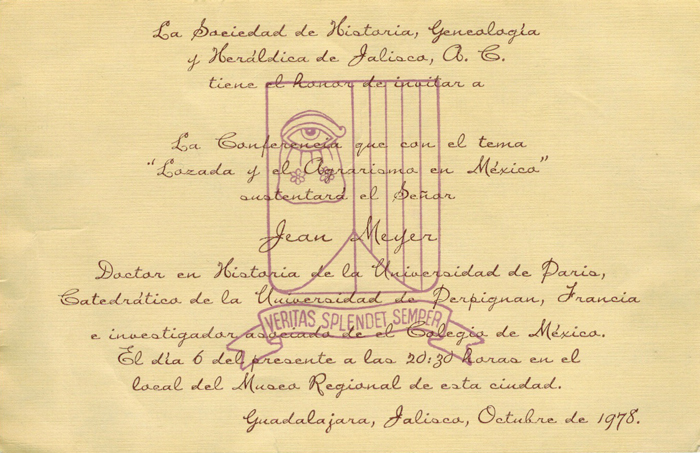 La Sociedad de Historia, Geneología
y Heráldica de Jalisco, A. C.
tiene el honor de invitar a
La Conferencia que con el tema
"Lozada y el Agrarismo en México"
sustentará el Señor
Jean Meyer
Doctor en Historia de la Universidad de Paris,
Catedrático de la Universidad de Perpignan, Francia
VERITAS SPLENDET SEMPER
e investigador asociado de el Colegio de México.
El día 6 del presente a las 20:30 horas en el
local del Museo Regional de esta ciudad.
Guadalajara, Jalisco, Octubre de 1978.